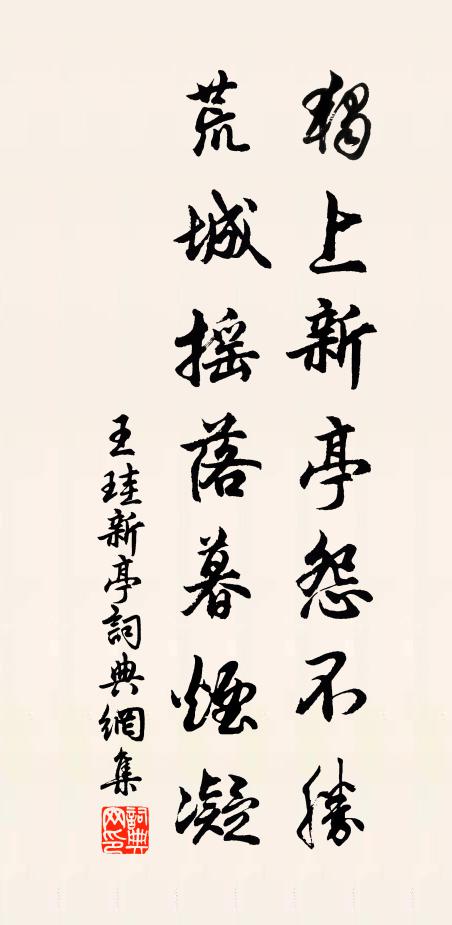 獨上新亭怨不勝
荒城搖落暮煙凝
王珪新亭詞典網集
詞典網印